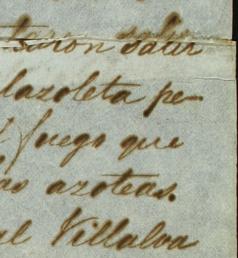 salir
plazoleta pe-
l fuego que
as azoteas.
al Villalva